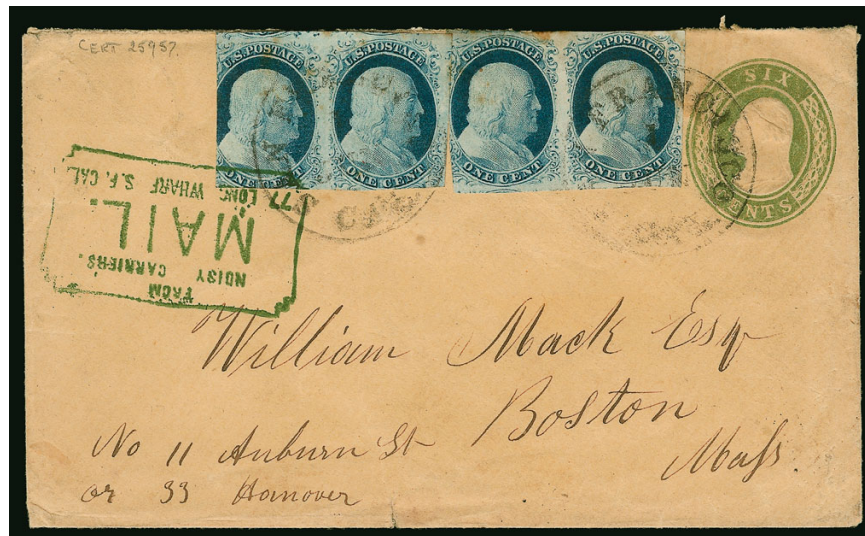 CERT 25957.
U.S. POSTAGE
ONE CENT
U.S. POSTAGE
ONE CENT
U.S. POSTAGE
ONE CENT
U.S. POSTAGE
ONE CENT
SIX
CENTS
SAN FRANCISCO
CAL.
FROM
NOISY CARRIERS'.
MAIL.
77 LONG WHARF S.F. CAL.
William Mack Esq
Boston
Mass.
No 11 Auburn St
or 33 Hanover